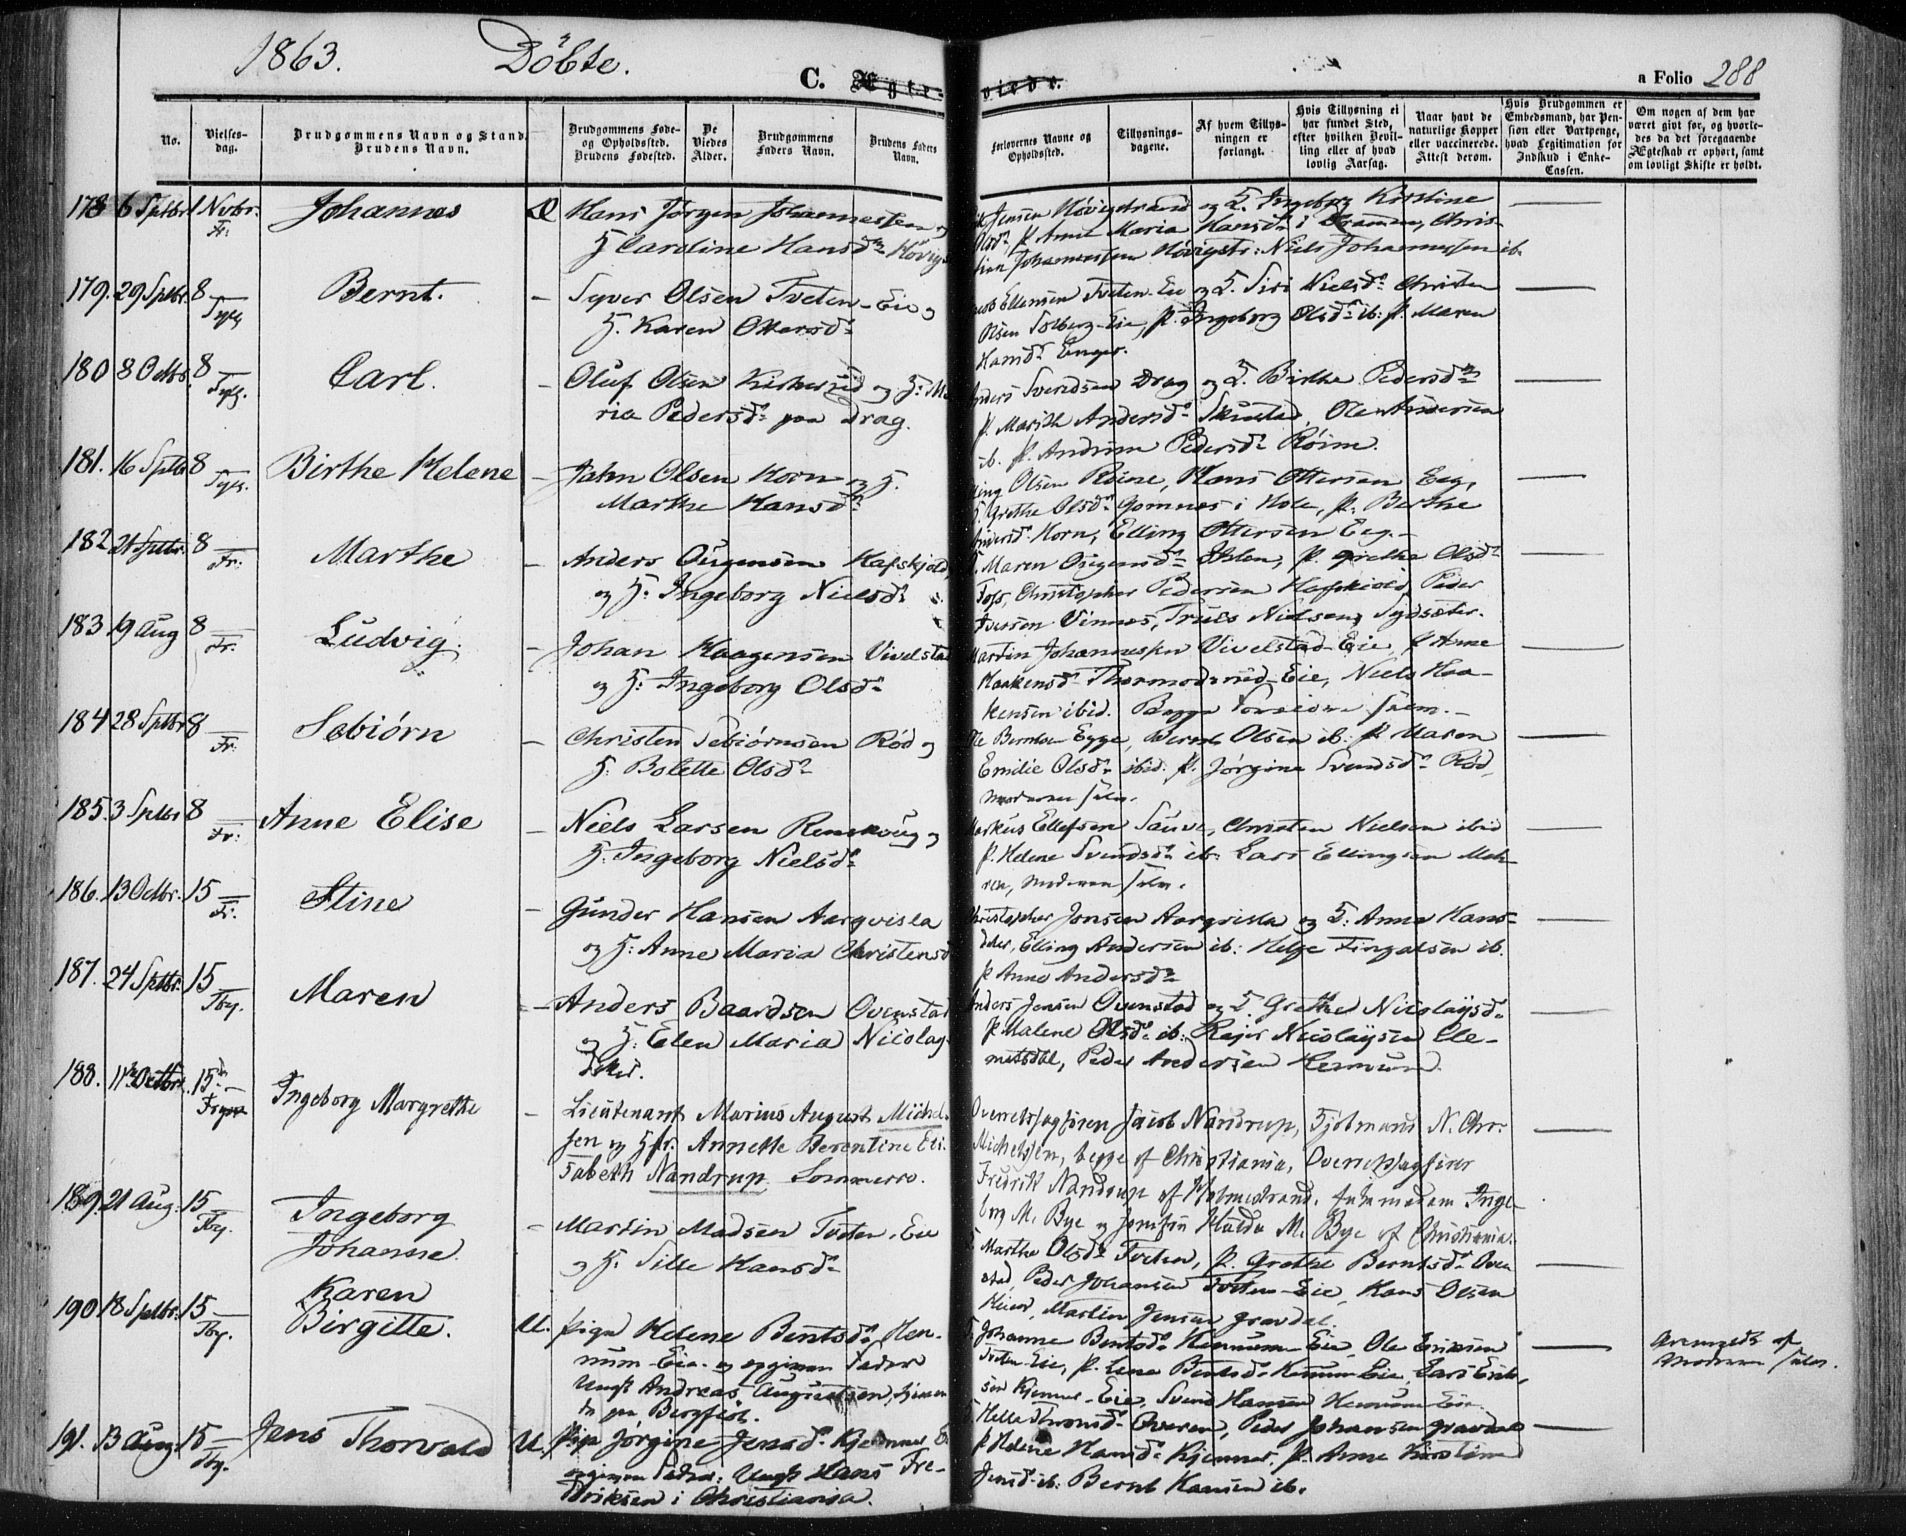 1863. Döbte.
C. Ægteviede.
a Folio 288
No.
Vielses-
dag.
Brudgommens Navn og Stand.
Brudens Navn.
Brudgommens Føde-
og Opholdssted.
Brudens Fødested.
De
Viedes
Alder.
Brudgommens
Faders Navn.
Brudens Faders
Navn.
Forlovernes Navne og
Opholdssted.
Tillysnings-
dagene.
Af hvem Tillys-
ningen er
forlangt.
Hvis Tillysning ei
har fundet Sted,
efter hvilken Bevil-
ling eller af hvad
lovlig Aarsag.
Naar havt de
naturlige Kopper
eller vaccinerede.
Attest derom.
Hvis Brudgommen er
Embedsmand, har Pen-
sion eller Vartpenge,
hvad Legitimation for
Indskud i Enke-
Cassen.
Om nogen af dem har
været givt før, og hvorle-
des da det foregaaende
Ægteskab er ophørt, samt
om lovligt Skifte er holdt.
178 6 Sptbr 1 Novbr. Fr: Johannes Æ Hans Jørgen Johannessen og
H Caroline Hansd. Høvig
Jensen Høvigstrand og H. Ingeborg Kirstine
Olsd. P. Anne Maria Hansd. i Dramen, Chris-
tian Johannessen Høvigstr: Niels Johannessen ib.
179. 29 Sptbr. 8 Bernt. – Syver Olsen Tveten-Eie og
H. Karen Ottersd.
Ellensen Tveten-Eie og H. Siri Nielsd. Christen
Olsen Solberg-Eie, P. Ingeborg Olsd. ib: P. Maren
Hansd. Enger.
180 8 Octbr. 8 Carl. – Oluf Olsen Kirkerud og H: Ma
ria Pedersd. paa Drag.
Anders Svendsen Drag og H. Birthe Pedersd.
P. Marith Andersd. Skustad, Ole Andersen
ib. P. Andrine Pedersd. Röine.
181. 16 Sptbr 8 Birthe Helene – John Olsen Horn og H.
Marthe Hansd.
Olsen Röine, Hans Ottersen Eeg,
Grethe Olsd. Gomnes i Hole, P. Berthe
Andersd. Horn, Elling Ottersen Eeg.
182. 21 Sptbr. 8 Fr: Marthe – Anders Ougensen Hafskjold,
og H: Ingeborg Nielsd.
Maren Ougensd. P. Grethe Olsd.
Foss, Christopher Pedersen Hafskiold, Peder
Iversen Vinnes, Truls Nielsen Sydsæter.
183 19 Aug 8 Fr: Ludvig. – Johan Haagensen Vivelstad
og H: Ingeborg Olsd.
Martin Johannesen Vivelstad-Eie, P. Anne
Haakensd. Thormodsrud-Eie, Niels Haa-
kensen ibid. Begge Forældre selv.
184 28 Sptbr 8 Fr: Sebiörn – Christen Sebiörnsen Röd og
H: Bolette Olsd.
Ole Berntsen Egge, Bernt Olsen ib: P. Maren
Emilie Olsd. ibid. P. Jörgine Svendsd. Röd,
moderen selv.
185 3 Sptbr 8 Fr: Anne Elise – Niels Larsen Renskoug og
H: Ingeborg Nielsd.
Markus Ellefsen Sauve, Christen Nielsen ibid
P. Helene Svendsd. ib: Lars Ellingsen Moh-
ren, moderen selv.
186. 13 Octbr. 15 Fr. Stine – Gunder Hansen Aarqvisla
og H: Anne Maria Christensd
Christopher Jonsen Aarqvisla og H: Anne Hans-
datter, Elling Andersen ib: Helge Fingalsen ib.
P Anne Andersd.
187. 24 Sptbr. 15 Tby. Maren – Anders Baardsen Ovenstad
og H: Elen Maria Nicolay-
dtr.
Anders Jensen Ovenstad og H. Grethe Nicolaysd.
P. Malene Olsd. ib: Rejer Nicolaysen Cle-
metsdal, Peder Andersen Hennum.
188. 11te Octbr. 15de Ingeborg Margrethe – Lieutenant Marius August Michel-
sen og H fr. Annette Berentine Eli-
sabeth Nandrup Sommerro.
Overretssagfører Jacob Nandrup, N. Chr.
Michelsen, begge af Christiania, Overretssagfører
Fredrik Nandrup af Holmestrand, Inge-
borg M. Bye og Jomfru Hulda M. Bye af Christiania.
189. 21 Aug: 15 Tby. Ingeborg
Johanne. – Martin Madsen Tveten-Eie
og H: Sille Hansd.
Marthe Olsd. Tveten, P. Grethe Berntsd. Oven
stad, Peder Johansen Tveten-Eie, Hans Olsen
Martin Jensen Gravdal.
190 18 Sptbr. 15 Tby. Karen
Birgitte. U. Pige Helene Bentsd. Hen-
num-Eie og opgiven Fader
Ungk Andreas Augustsen, tjenen
de paa Bergfløt.
Johanne Bentsd. Hennum-Eie, Ole Eriksen
Tveten-Eie, P. Lene Bentsd. Hennum-Eie, Lars Erik-
sen Kjenner-Eie, Svend Hansen Hennum Eie.
Moderen selv.
191. 13 Aug: 15 Tby. Jens Thorvald U. Pige Jørgine Jensd. Kjenner E
opgiven Fader: Ungk Hans Fre-
driksen i Christiania.
Helle Thronsd. Overen, Peder Johansen Gravdal
P Helene Hansd. Kjenner, P. Anne Kirstine
Jensd. ib. Bernt Hansen ib.